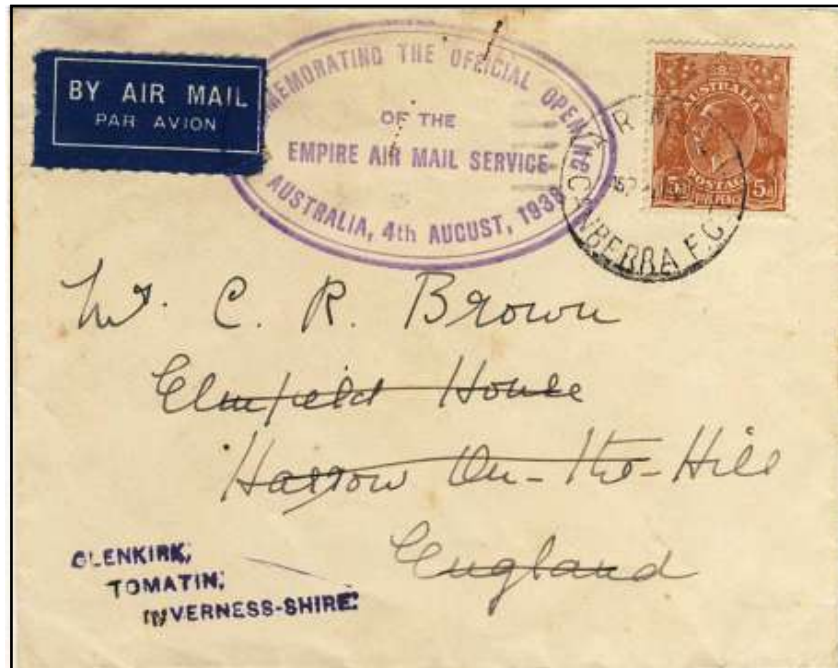 BY AIR MAIL
PAR AVION
MEMORATING THE OFFICIAL OPENING
OF THE
EMPIRE AIR MAIL SERVICE
AUSTRALIA, 4th AUGUST, 1938
AUSTRALIA
5d 5d
POSTAGE
FIVE PENCE
CANBERRA F.C.T
Mr. C. R. Brown
Elmfield House
Harrow On-the-Hill
England
GLENKIRK,
TOMATIN,
INVERNESS-SHIRE.